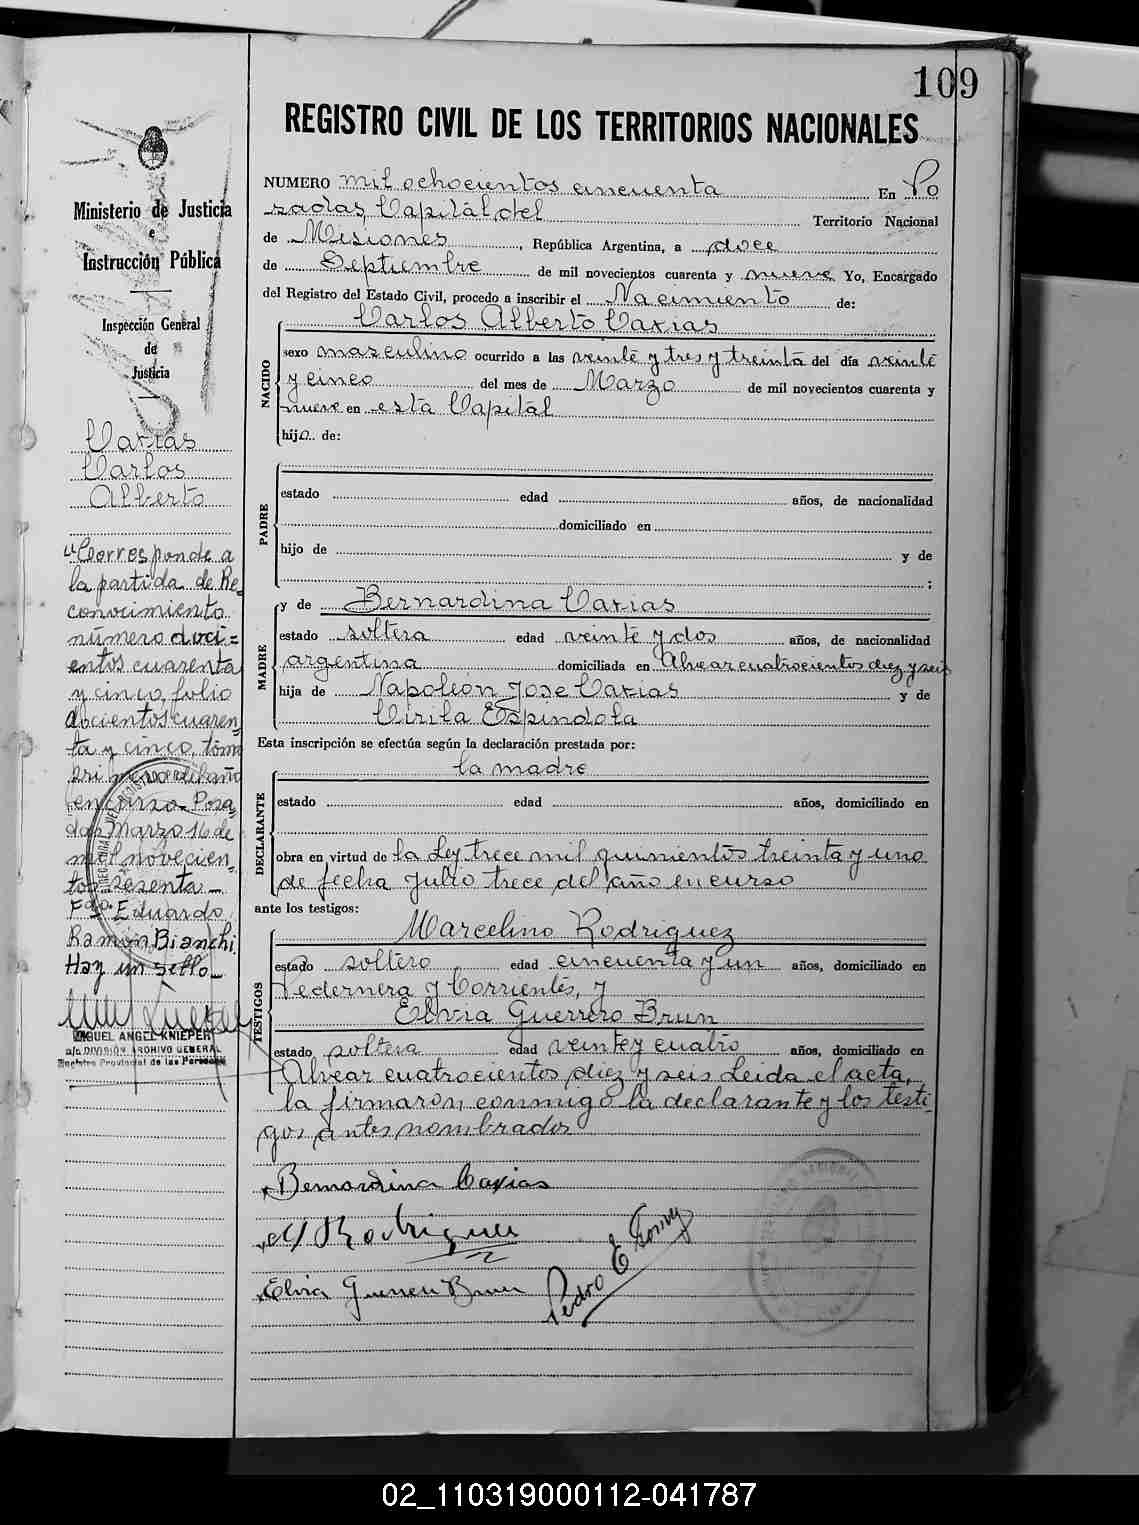 109
REGISTRO CIVIL DE LOS TERRITORIOS NACIONALES
Ministerio de Justicia
e
Instrucción Pública
Inspección General
de
Justicia
Caxias
Carlos
Alberto
"Corresponde a
la partida de Re
conocimiento
número doci=
entos cuarenta
y cinco, folio
docientos cuaren
ta y cinco, tomo
primero del año
en curso. Posa
das Marzo 16 de
mil novecien
tos sesenta.-
Fdo. Eduardo
Ramón Bianchi.
Hay un sello-
MIGUEL ANGEL KNIEPER
a/c DIVISIÓN ARCHIVO GENERAL
Registro Provincial de las Personas
NUMERO mil ochocientos cincuenta En Po
sadas, Capital del Territorio Nacional
de Misiones, República Argentina, a doce
de Septiembre de mil novecientos cuarenta y nueve Yo, Encargado
del Registro del Estado Civil, procedo a inscribir el Nacimiento de:
NACIDO
Carlos Alberto Caxias
sexo masculino ocurrido a las veinte y tres y treinta del día veinte
y cinco del mes de Marzo de mil novecientos cuarenta y
nueve en esta Capital
hijo.. de:
PADRE
estado edad años, de nacionalidad
domiciliado en
hijo de y de
;
MADRE
y de Bernardina Caxias
estado soltera edad veinte y dos años, de nacionalidad
argentina domiciliada en Alvear cuatrocientos diez y seis
hija de Napoleón José Caxias y de
Cirila Espindola
Esta inscripción se efectúa según la declaración prestada por:
DECLARANTE
la madre
estado edad años, domiciliado en
obra en virtud de la Ley trece mil quinientos treinta y uno
de fecha Julio trece del año en curso
ante los testigos:
TESTIGOS
Marcelino Rodriguez
estado soltero edad cincuenta y un años, domiciliado en
Pedernera y Corrientes, y
Elvia Guerrero Brun
estado soltera edad veinte y cuatro años, domiciliado en
Alvear cuatrocientos diez y seis Leida el acta,
la firmaron conmigo la declarante y los testi
gos antes nombrados
Bernardina Caxias
M Rodriguez
Elvia Guerrero Brun
Pedro E
02_110319000112-041787